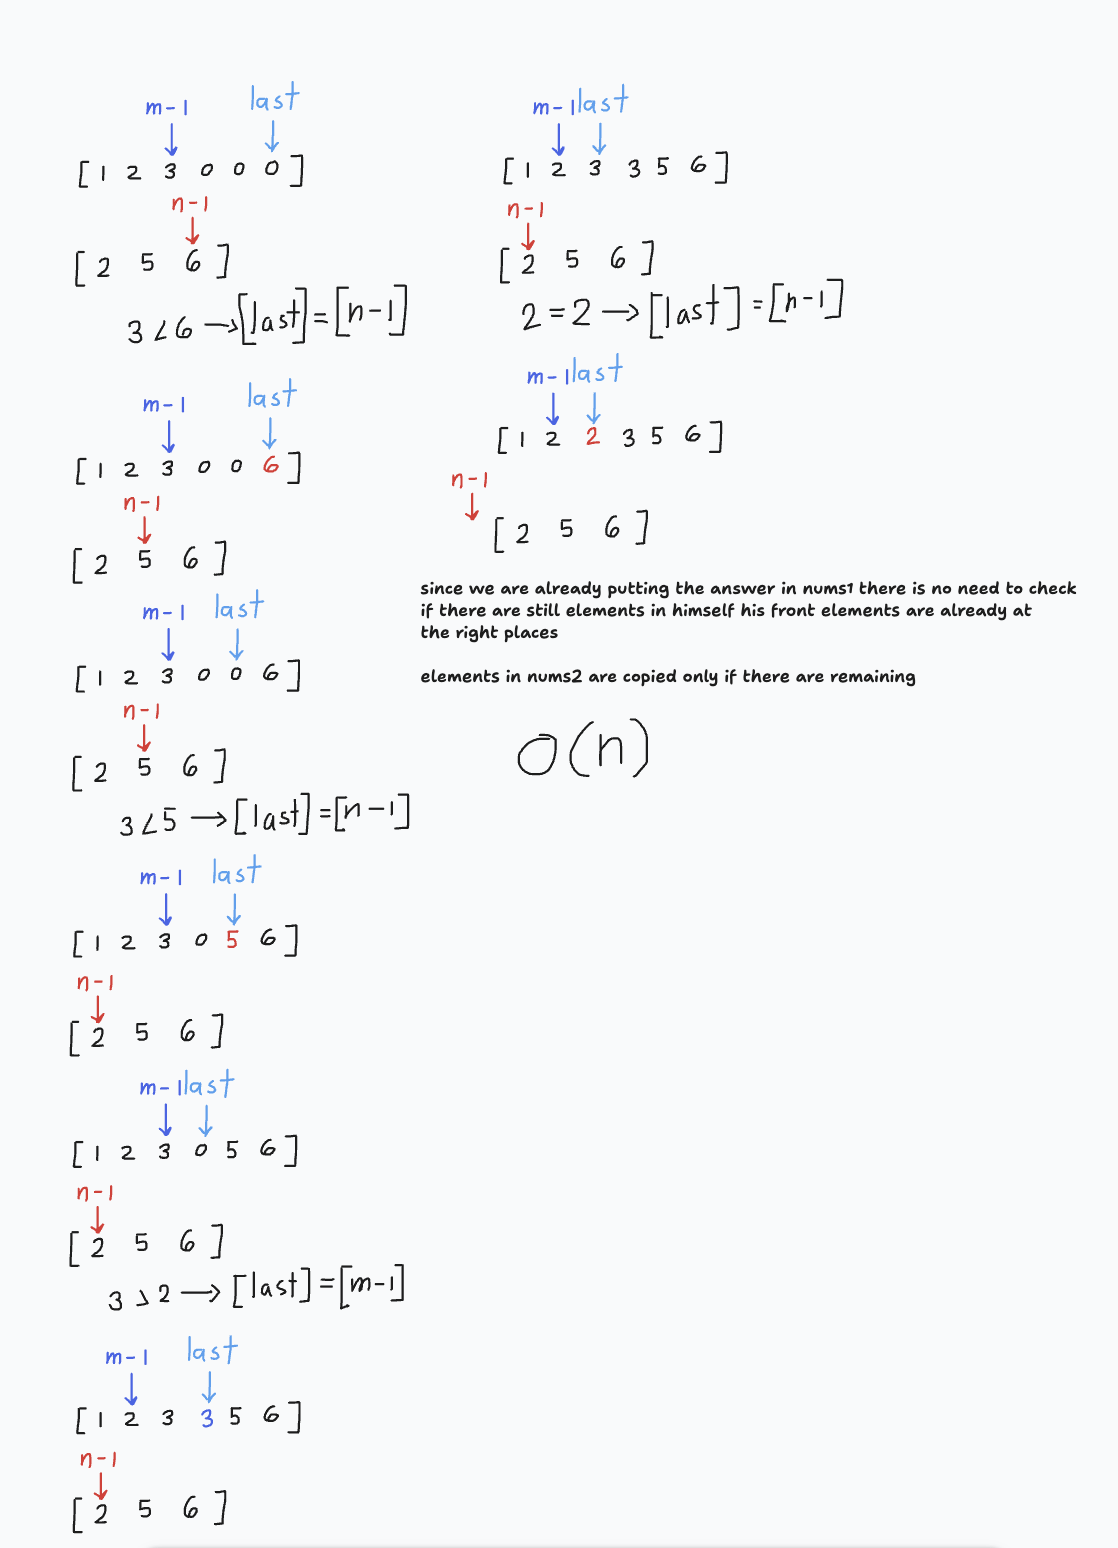 m-1 last
[ 1 2 3 0 0 0 ]
n-1
[ 2 5 6 ]
3 < 6 → [last] = [n-1]
m-1 last
[ 1 2 3 0 0 6 ]
n-1
[ 2 5 6 ]
m-1 last
[ 1 2 3 0 0 6 ]
n-1
[ 2 5 6 ]
3 < 5 → [last] = [n-1]
m-1 last
[ 1 2 3 0 5 6 ]
n-1
[ 2 5 6 ]
m-1 last
[ 1 2 3 0 5 6 ]
n-1
[ 2 5 6 ]
3 > 2 → [last] = [m-1]
m-1 last
[ 1 2 3 3 5 6 ]
n-1
[ 2 5 6 ]
m-1 last
[ 1 2 3 3 5 6 ]
n-1
[ 2 5 6 ]
2 = 2 → [last] = [n-1]
m-1 last
[ 1 2 2 3 5 6 ]
n-1
[ 2 5 6 ]
since we are already putting the answer in nums1 there is no need to check
if there are still elements in himself his front elements are already at
the right places
elements in nums2 are copied only if there are remaining
O(n)